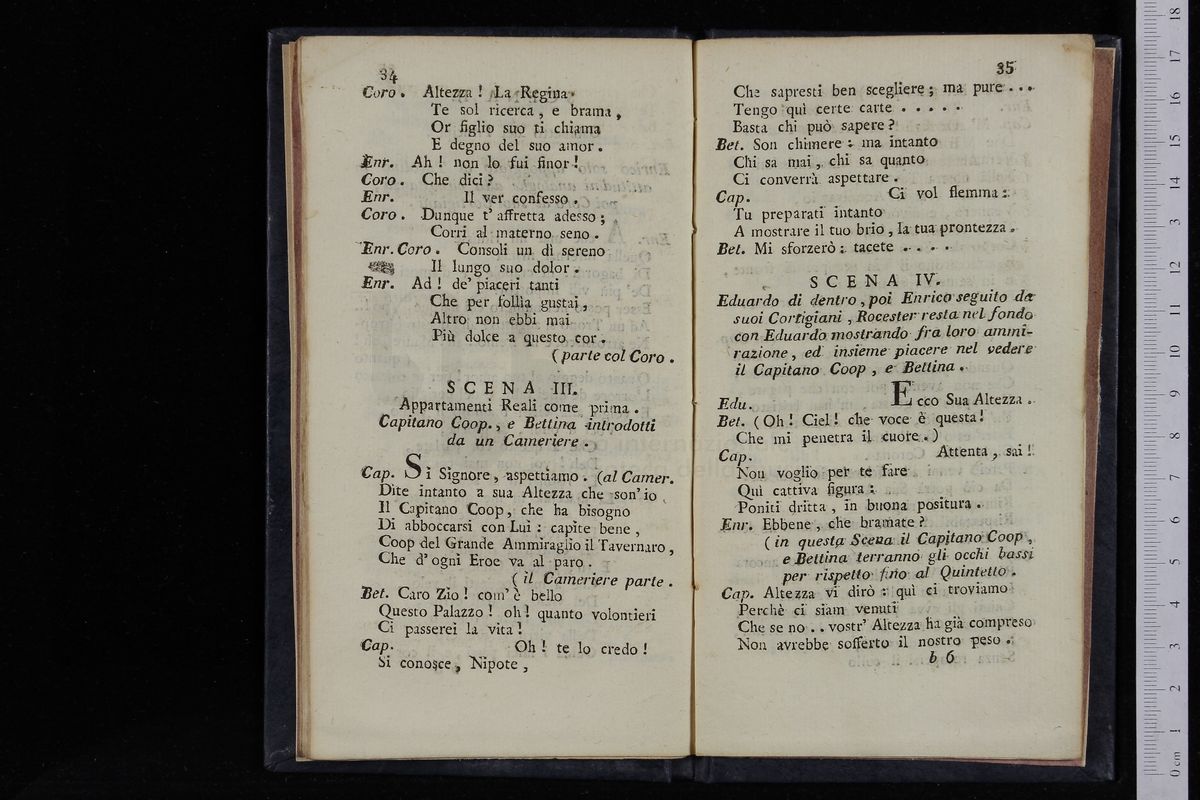 34
Coro. Altezza! La Regina
Te sol ricerca, e brama,
Or figlio suo ti chiama
E degno del suo amor.
Enr. Ah! non lo fui finor!
Coro. Che dici?
Enr. Il ver confesso.
Coro. Dunque t' affretta adesso;
Corri al materno seno.
Enr. Coro. Consoli un dì sereno
Il lungo suo dolor.
Enr. Ad! de' piaceri tanti
Che per follìa gustai,
Altro non ebbi mai
Più dolce a questo cor.
(parte col Coro.
SCENA III.
Appartamenti Reali come prima.
Capitano Coop., e Bettina introdotti
da un Cameriere.
Cap. Sì Signore, aspettiamo. (al Camer.
Dite intanto a sua Altezza che son' io
Il Capitano Coop, che ha bisogno
Di abboccarsi con Lui: capite bene,
Coop del Grande Ammiraglio il Tavernaro,
Che d' ogni Eroe va al paro.
(il Cameriere parte.
Bet. Caro Zio! com' è bello
Questo Palazzo! oh! quanto volontieri
Ci passerei la vita!
Cap. Oh! te lo credo!
Si conosce, Nipote,
35
Che sapresti ben scegliere; ma pure...
Tengo quì certe carte.....
Basta chi può sapere?
Bet. Son chimere: ma intanto
Chi sa mai, chi sa quanto
Ci converrà aspettare.
Cap. Ci vol flemma:
Tu preparati intanto
A mostrare il tuo brio, la tua prontezza.
Bet. Mi sforzerò: tacete....
SCENA IV.
Eduardo di dentro, poi Enrico seguito da
suoi Cortigiani, Rocester resta nel fondo
con Eduardo mostrando fra loro ammi-
razione, ed insieme piacere nel vedere
il Capitano Coop, e Bettina.
Edu. Ecco Sua Altezza.
Bet. (Oh! Ciel! che voce è questa!
Che mi penetra il cuore.)
Cap. Attenta, sai!
Non voglio per te fare
Quì cattiva figura:
Poniti dritta, in buona positura.
Enr. Ebbene, che bramate?
(in questa Scena il Capitano Coop,
e Bettina terranno gli occhi bassi
per rispetto fino al Quintetto.
Cap. Altezza vi dirò: quì ci troviamo
Perchè ci siam venuti
Che se no.. vostr' Altezza ha già compreso
Non avrebbe sofferto il nostro peso.
b 6
0 cm 1 2 3 4 5 6 7 8 9 10 11 12 13 14 15 16 17 18